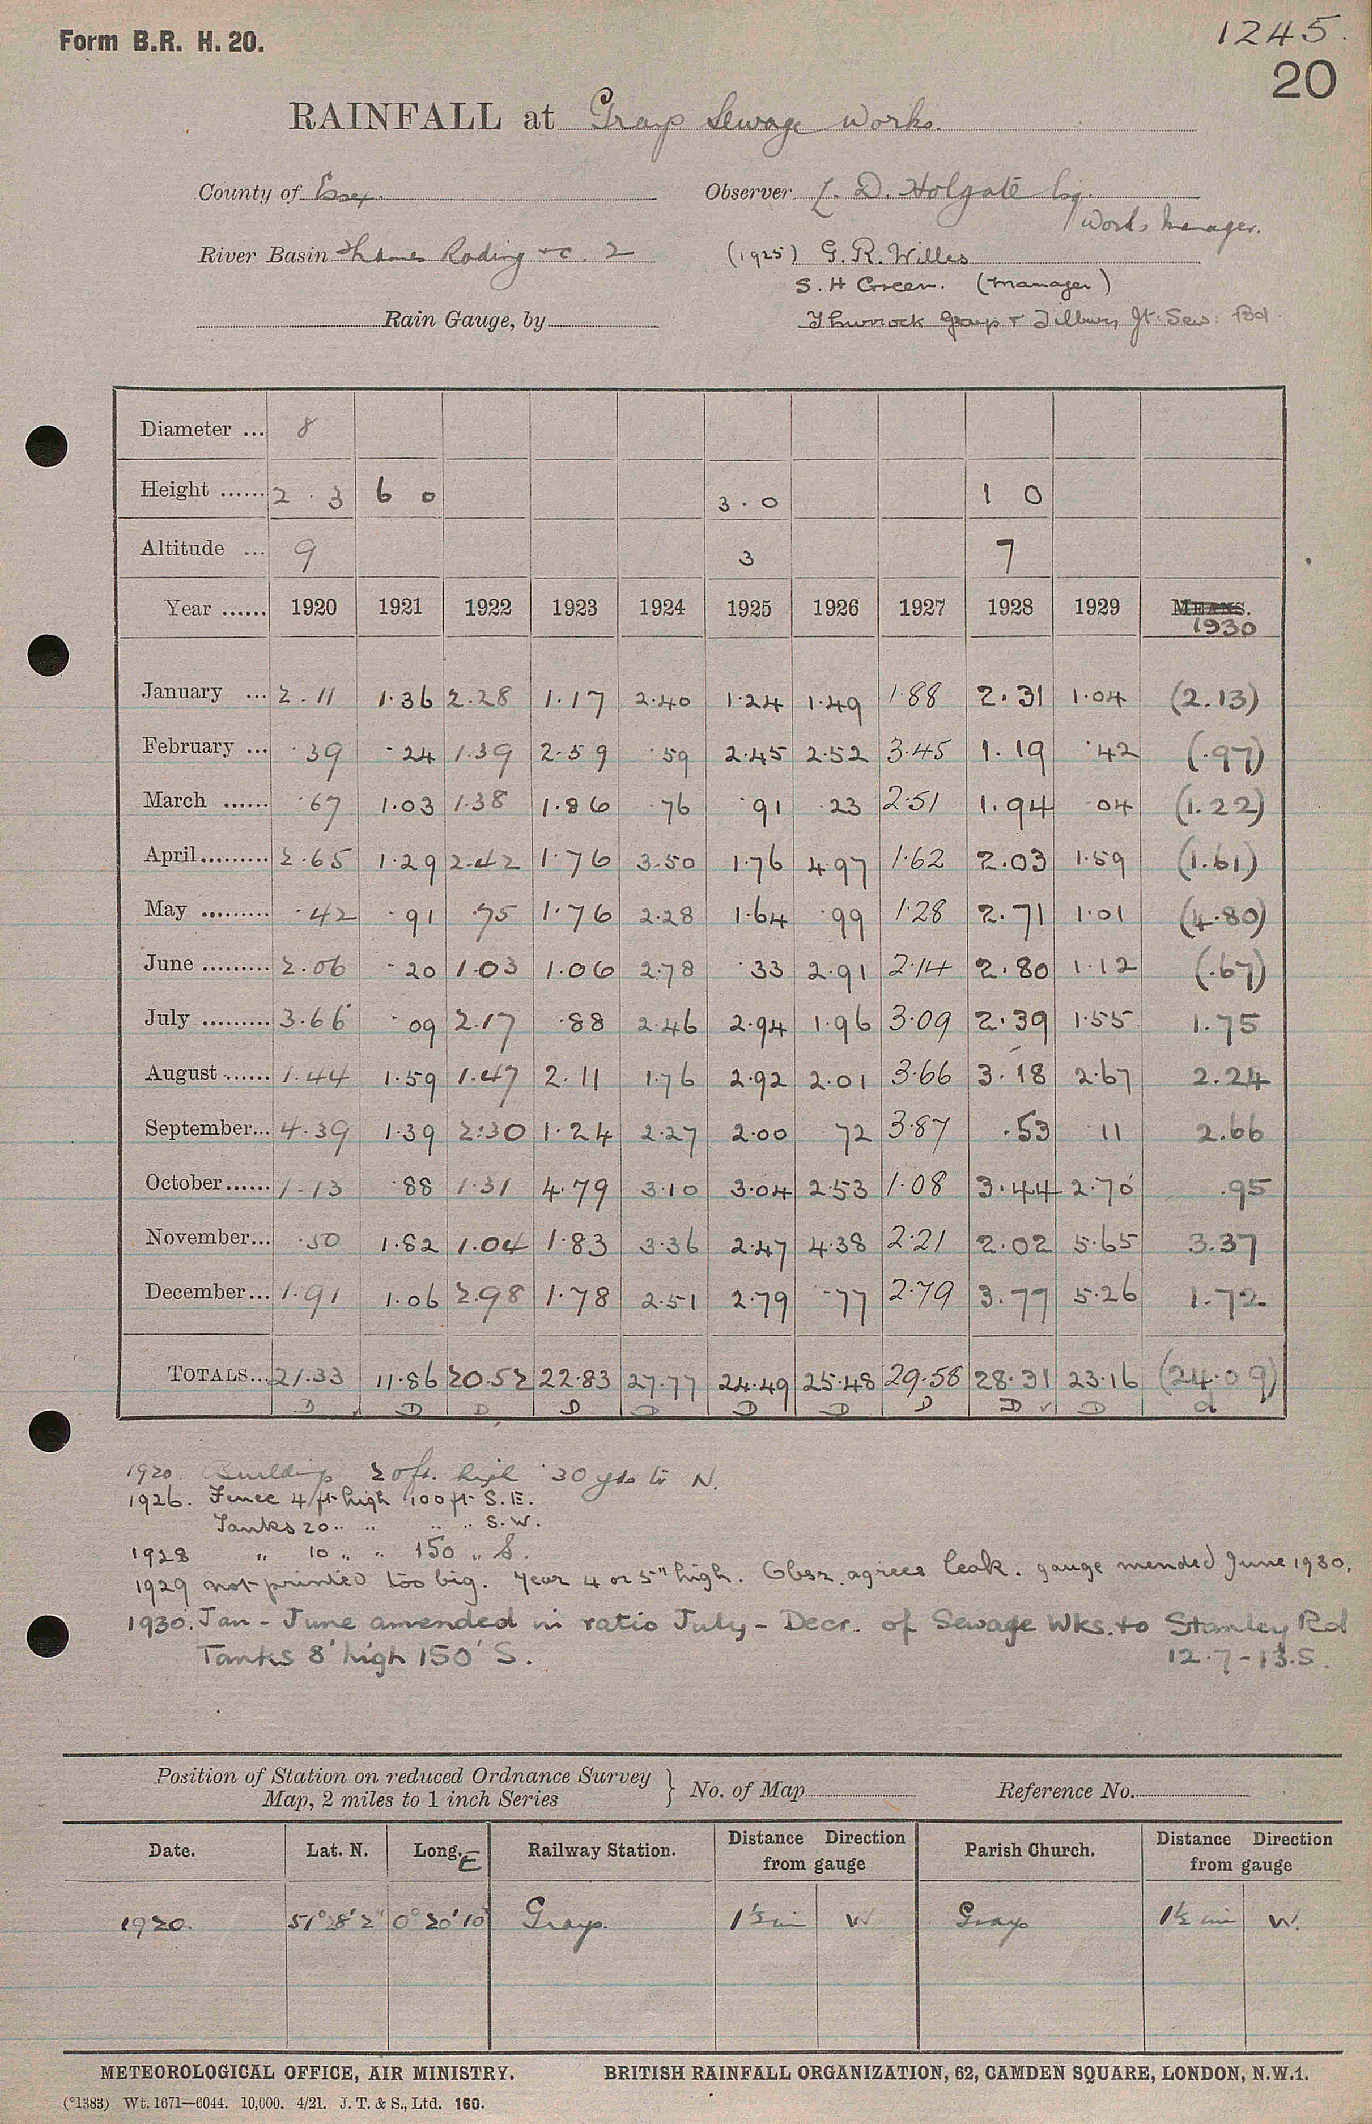 Form B.R. H. 20.
1245.
20
RAINFALL at Grays Sewage Works.
County of Essex. Observer L. D. Holgate Esq.
Works Manager.
River Basin Thames Roding &c. 2 (1925) G. R. Willes
S. H Green. (Manager)
Rain Gauge, by Thurrock Grays & Tilbury Jt. Sew. Bd
Diameter ... 8
Height ...... 2 . 3 6 0 3 . 0 1 0
Altitude ... 9 3 7
Year ...... 1920 1921 1922 1923 1924 1925 1926 1927 1928 1929 MEANS.
1930
January ... 2.11 1.36 2.28 1.17 2.40 1.24 1.49 1.88 2.31 1.04 (2.13)
February ... .39 .24 1.39 2.59 .59 2.45 2.52 3.45 1.19 .42 (.97)
March ...... .67 1.03 1.38 1.86 .76 .91 .23 2.51 1.94 .04 (1.22)
April ......... 2.65 1.29 2.42 1.76 3.50 1.76 4.97 1.62 2.03 1.59 (1.61)
May ......... .42 .91 .75 1.76 2.28 1.64 .99 1.28 2.71 1.01 (4.80)
June ......... 2.06 .20 1.03 1.06 2.78 .33 2.91 2.14 2.80 1.12 (.67)
July ......... 3.66 .09 2.17 .88 2.46 2.94 1.96 3.09 2.39 1.55 1.75
August ...... 1.44 1.59 1.47 2.11 1.76 2.92 2.01 3.66 3.18 2.67 2.24
September... 4.39 1.39 2.30 1.24 2.27 2.00 .72 3.87 .53 .11 2.66
October ...... 1.13 .88 1.31 4.79 3.10 3.04 2.53 1.08 3.44 2.70 .95
November... .50 1.82 1.04 1.83 3.36 2.47 4.38 2.21 2.02 5.65 3.37
December... 1.91 1.06 2.98 1.78 2.51 2.79 .77 2.79 3.77 5.26 1.72
TOTALS... 21.33 11.86 20.52 22.83 27.77 24.49 25.48 29.58 28.31 23.16 (24.09)
D D D D D D D D D ✓ D d
1920. Buildings 20ft. high 30 yds to N.
1926. Fence 4 ft high 100 ft S.E.
Tanks 20 .. .. .. .. S.W.
1928 " 10 .. .. 150 .. S.
1929 not printed too big. Year 4 or 5" high. Obsr. agrees leak. gauge mended June 1930.
1930. Jan - June amended in ratio July - Decr. of Sewage Wks. to Stanley Rd
Tanks 8' high 150' S. 12.7 - 13.5.
Position of Station on reduced Ordnance Survey
Map, 2 miles to 1 inch Series } No. of Map Reference No.
Date. Lat. N. Long. E Railway Station. Distance from gauge Direction Parish Church. Distance from gauge Direction
1920. 51°28'2" 0°20'10" Grays. W Grays 1½ mi W.
METEOROLOGICAL OFFICE, AIR MINISTRY. BRITISH RAINFALL ORGANIZATION, 62, CAMDEN SQUARE, LONDON, N.W.1.
(*1383) Wt. 1671—6044. 10,000. 4/21. J. T. & S., Ltd. 160.